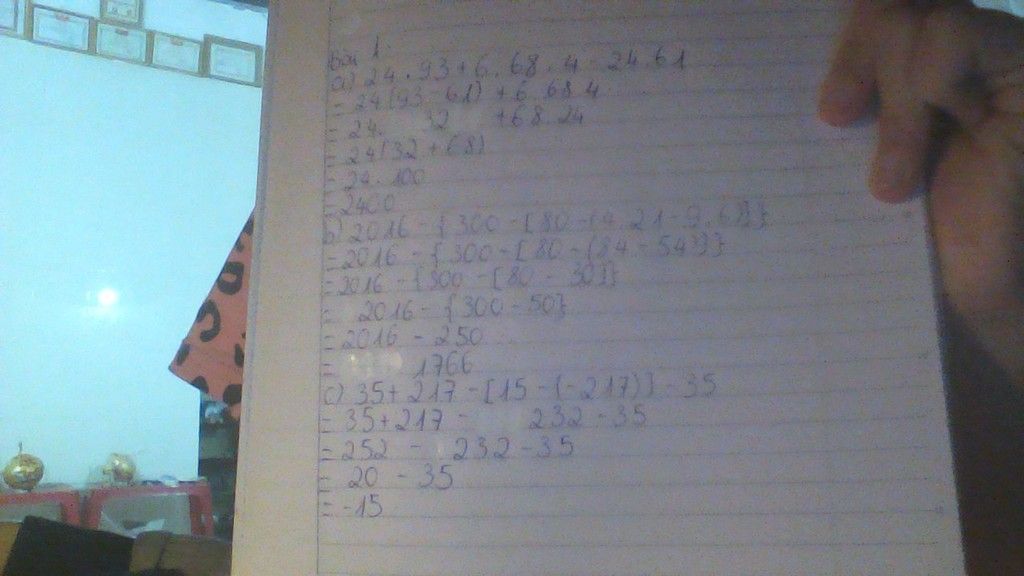 Bài 1
a) 24.93+6.68.4-24.61
= 24(93-61)+6.68.4
= 24. 32 +68.24
= 24(32+68)
= 24.100
= 2400
b) 2016-{300-[80-(4.21-9.6)]}
= 2016-{300-[80-(84-54)]}
= 2016-{300-[80-30]}
= 2016-{300-50}
= 2016-250
= 1766
c) 35+217-[15-(-217)]-35
= 35+217- 232-35
= 252 - 232-35
= 20 -35
= -15